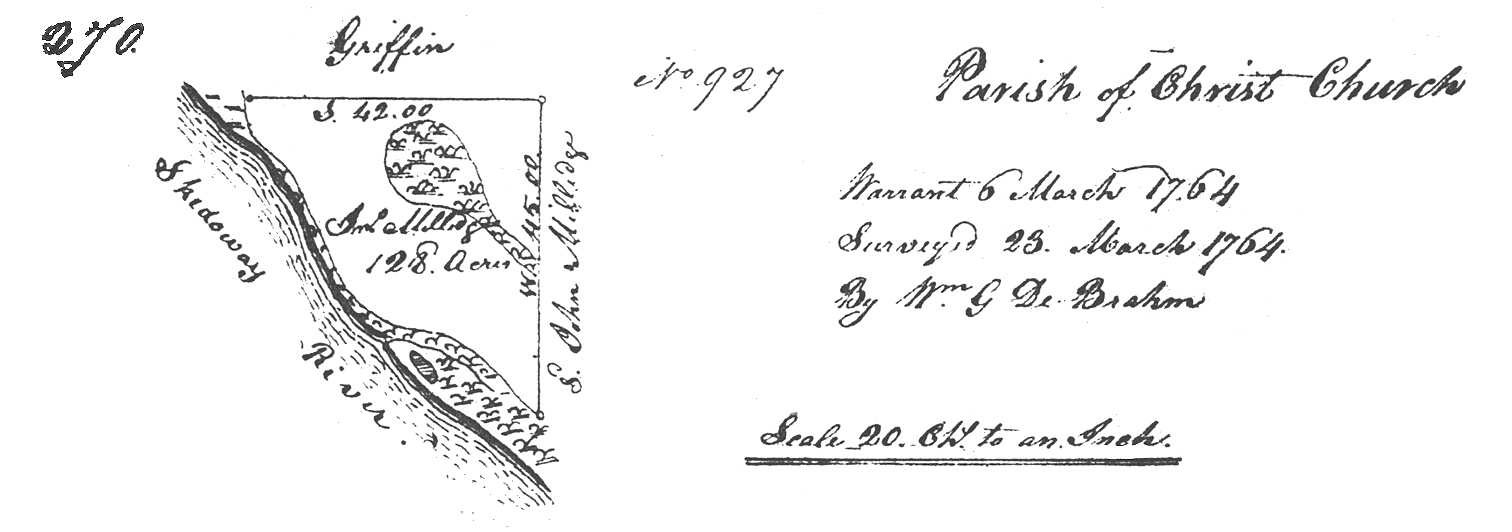 270.
Griffin
No 927
Parish of Christ Church
S. 42.00
Skedoway
River.
Jnº Milledge
128. Acres
W. 45.00
S. John Milledge
Warrant 6 March 1764
Survey'd 23. March 1764.
By Wm. G De Brahm
Scale 20. Ch. to an Inch.